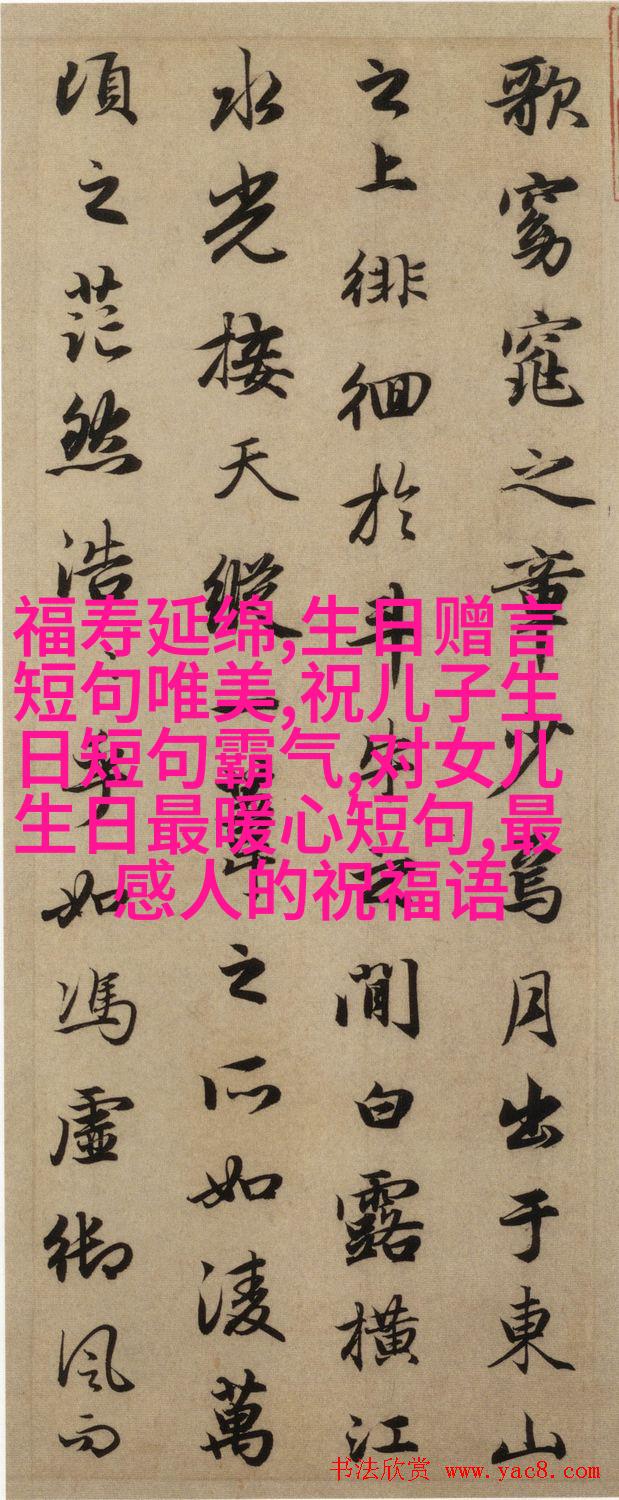 歌窈窕之章少焉月出于東山
之上徘徊於斗牛之間白露橫江
水光接天縱一葦之所如淩萬
頃之茫然浩々乎如馮虛御風而
福寿延绵,生日赠言
短句唯美,祝儿子生
日短句霸气,对女儿
生日最暖心短句,最
感人的祝福语
书法欣赏 www.yac8.com